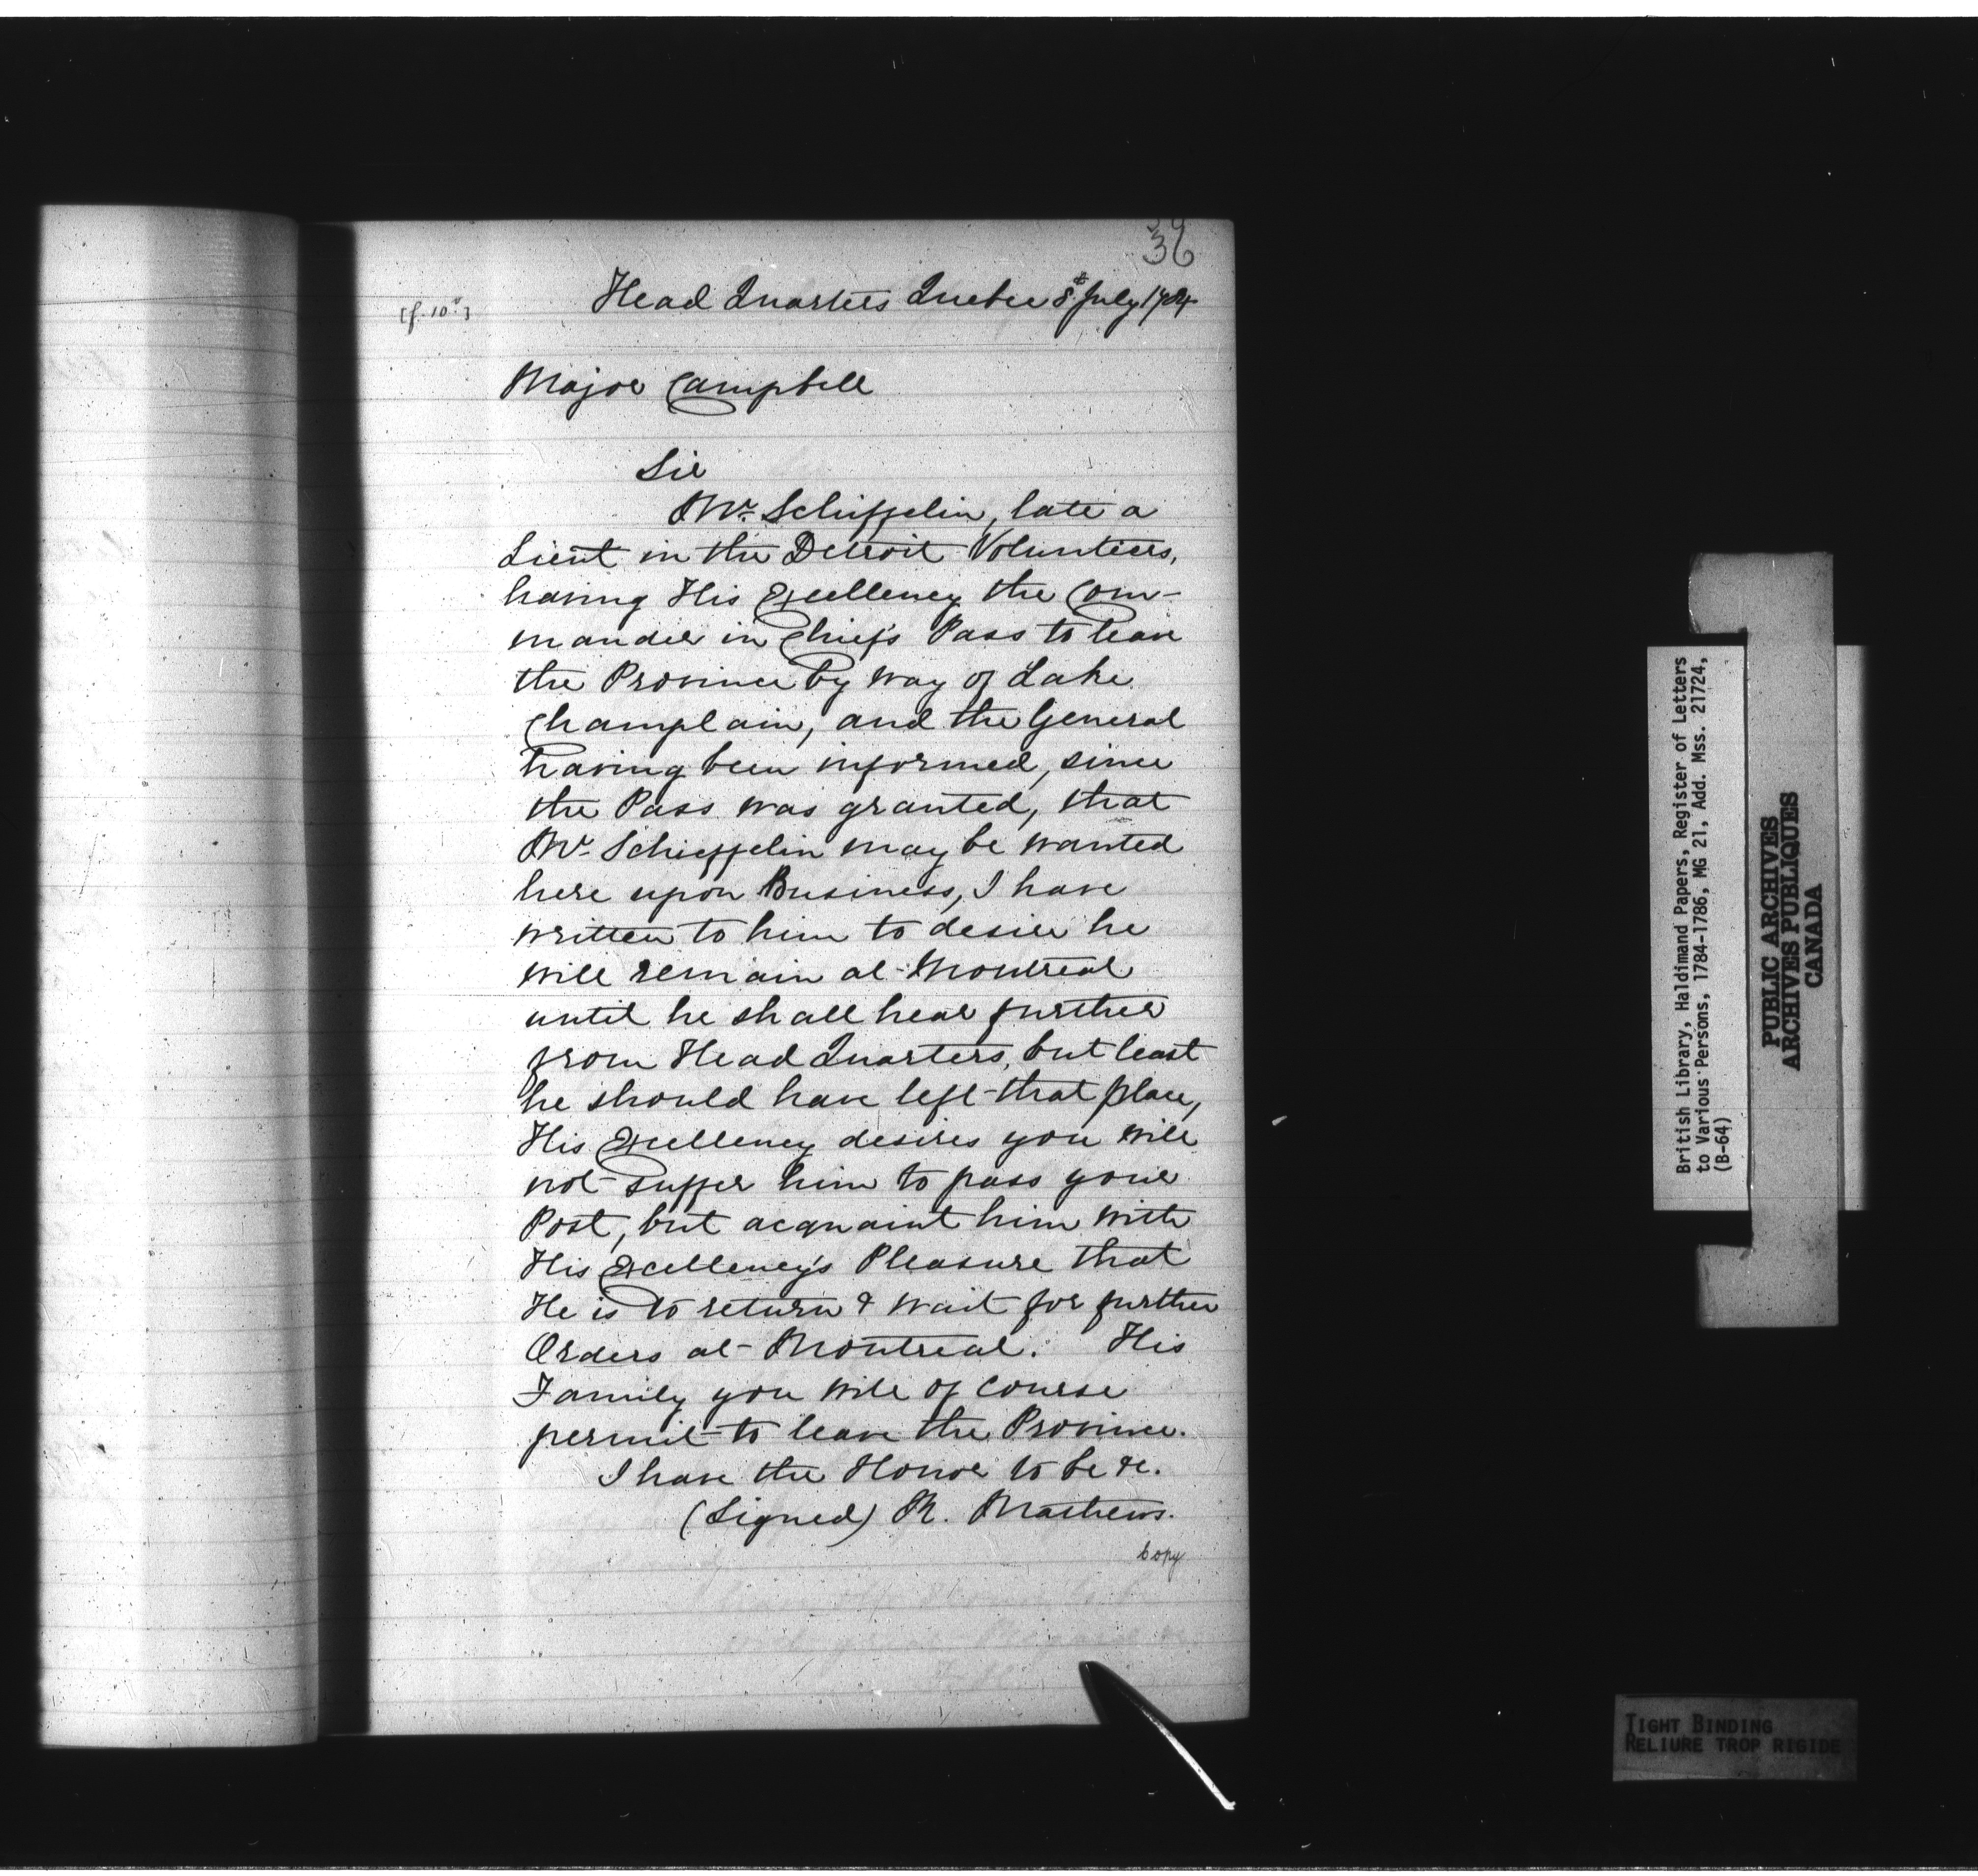 36
[f. 10v]
Head Quarters Quebec 8th July 1784
Major Campbell
Sir
Mr. Schiffelin, late a
Lieut in the Detroit Volunteers,
having His Excellency the Com-
mander in Chief's Pass to leave
the Province by way of Lake
Champlain, and the General
having been informed, since
the Pass was granted, that
Mr. Schieffelin may be wanted
here upon Business, I have
written to him to desire he
will remain at Montreal
until he shall hear further
from Head Quarters, but least
he should have left that place,
His Excellency desires you will
not suffer him to pass your
Post, but acquaint him with
His Excellency's Pleasure that
He is to return & wait for further
Orders at Montreal. His
Family you will of course
permit to leave the Province.
I have the Honor to be &c.
(Signed) R. Mathews.
Copy
British Library, Haldimand Papers, Register of Letters
to Various Persons, 1784-1786, MG 21, Add. Mss. 21724,
(B-64)
PUBLIC ARCHIVES
ARCHIVES PUBLIQUES
CANADA
TIGHT BINDING
RELIURE TROP RIGIDE